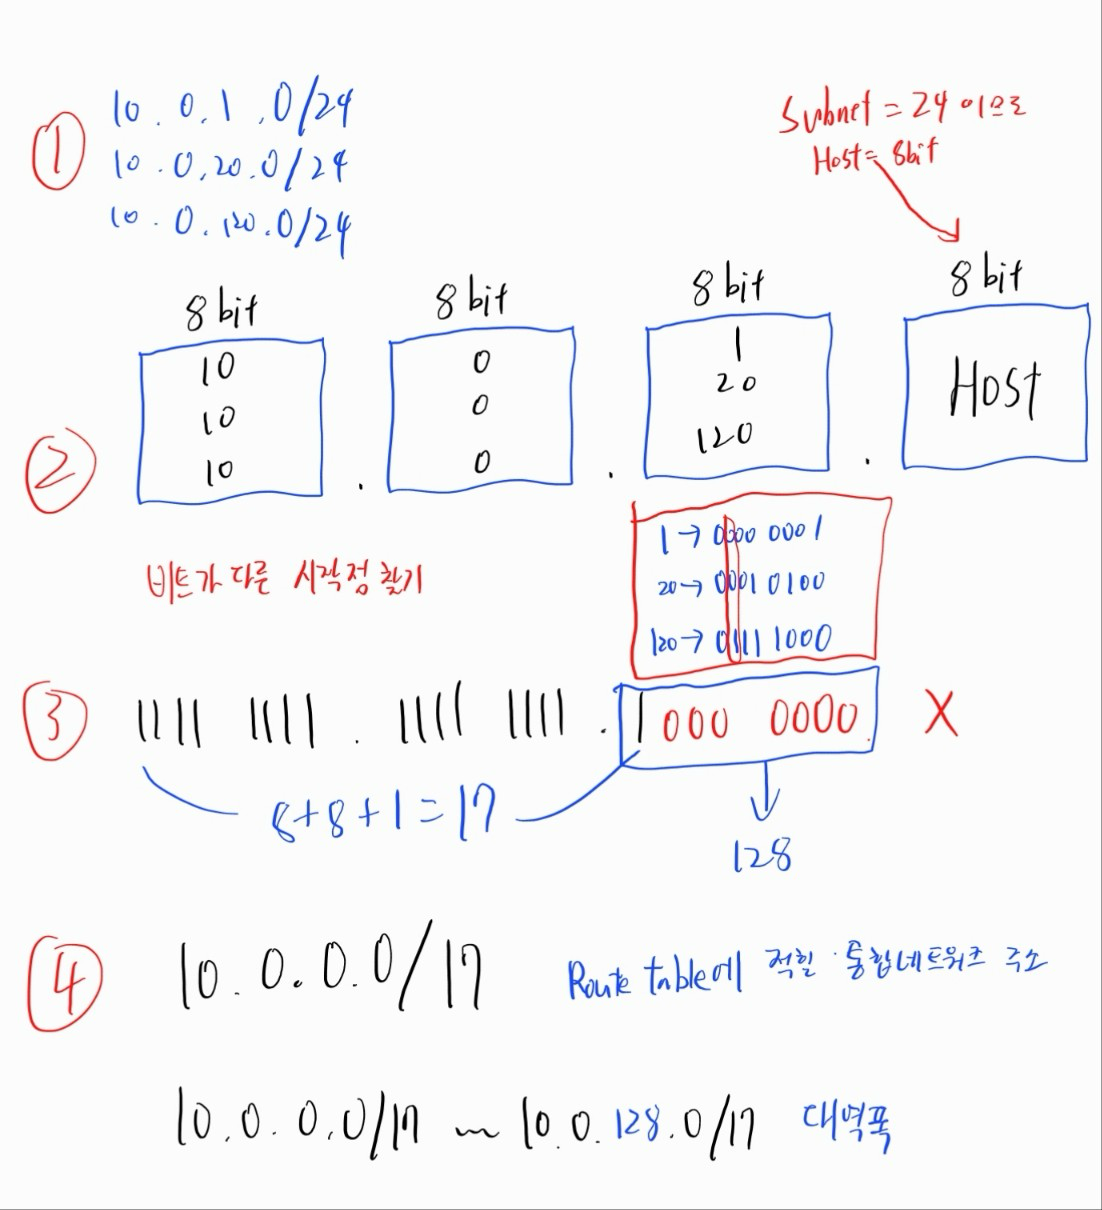 ① 10.0.1.0/24
10.0.20.0/24
10.0.120.0/24
Subnet = 24 이므로
Host = 8bit
8 bit 8 bit 8 bit 8 bit
②
10 0 1 Host
10 0 20
10 0 120
. . .
1 → 0000 0001
20 → 0001 0100
120 → 0111 1000
비트가 다른 시작점 찾기
③ 1111 1111 . 1111 1111 . 1000 0000. X
8+8+1=17
128
④ 10.0.0.0/17 Route table에 적힐 통합네트워크 주소
10.0.0.0/17 ~ 10.0.128.0/17 대역폭